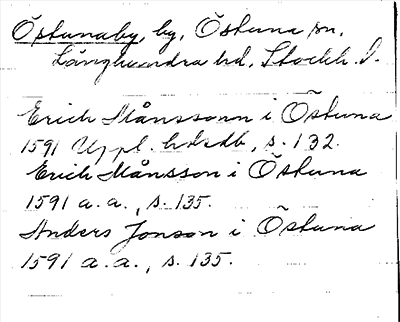 Östunaby, by, Östuna sn,
Långhundra hd, Stockh. l.
Erich Månssonn i Östuna
1591 Uppl. hdrdb, s. 132.
Erich Månsson i Östuna
1591 a.a., s. 135.
Anders Jonson i Östuna
1591 a.a., s. 135.